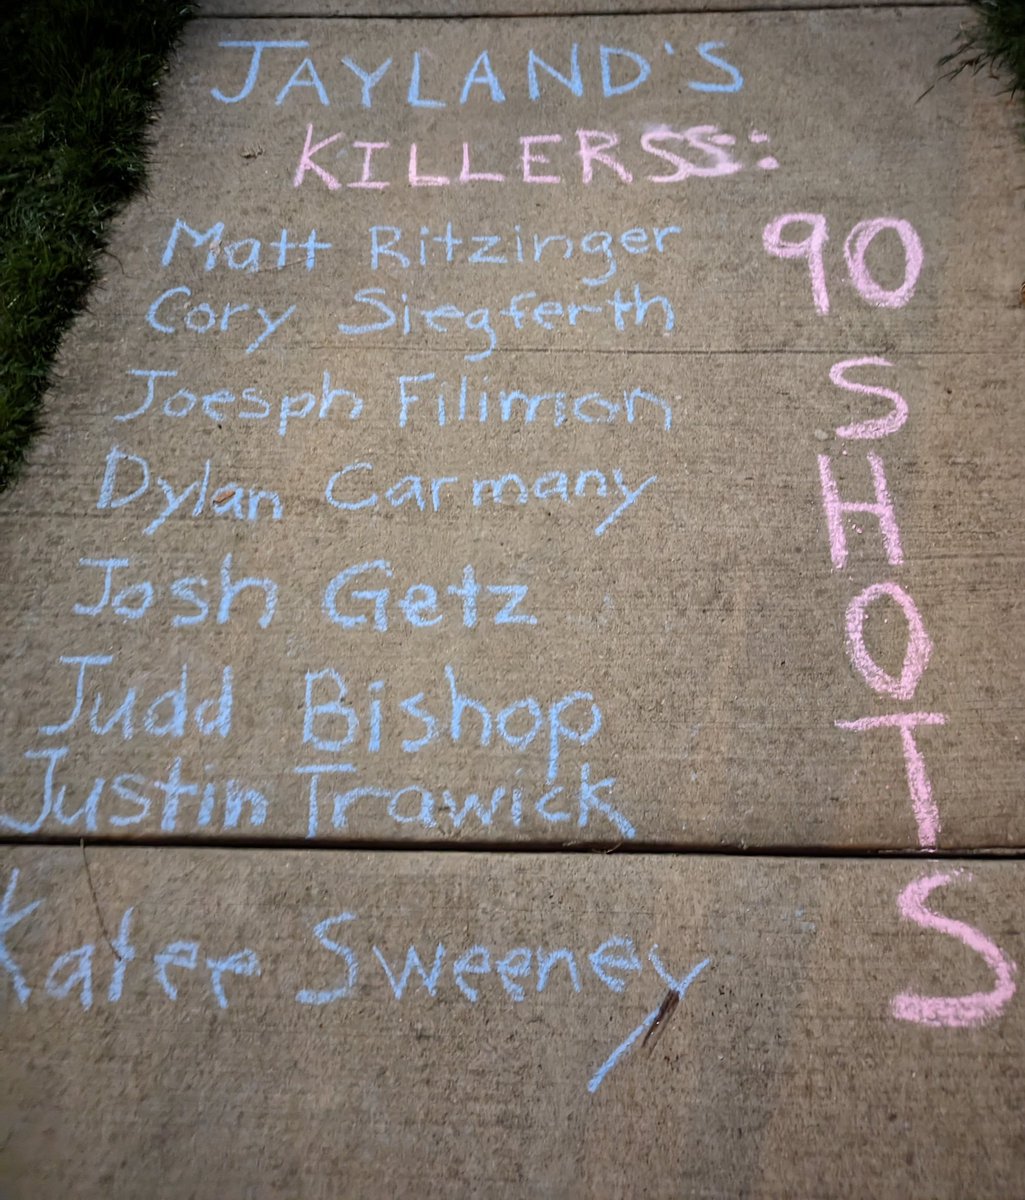 JAYLAND'S
KILLERSS:
Matt Ritzinger
Cory Siegferth
Joesph Filimon
Dylan Carmany
Josh Getz
Judd Bishop
Justin Trawick
Katee Sweeney
90
SHOTS